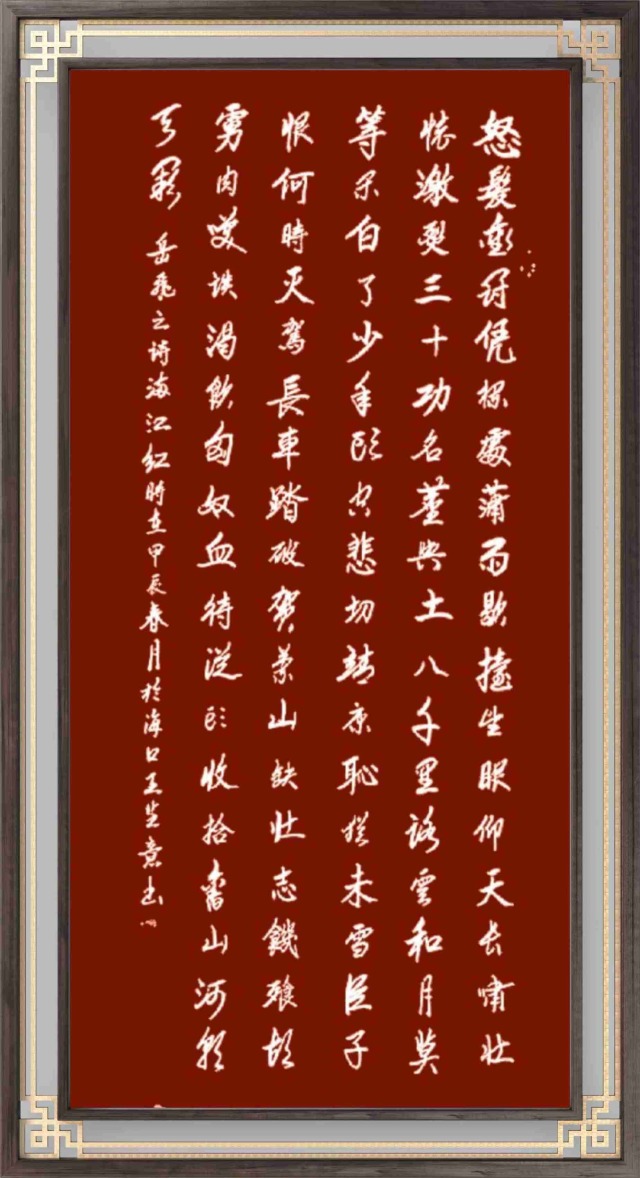 怒髮衝冠凭欄處瀟雨歇擡望眼仰天长嘯壯
懷激烈三十功名塵與土八千里路雲和月莫
等閑白了少年頭空悲切靖康恥猶未雪臣子
恨何時灭駕長車踏破賀蘭山缺壯志饑飱胡
虜肉笑談渴飲匈奴血待從頭收拾舊山河朝
天闕 岳飛之詩滿江红時在甲辰春月於海口王